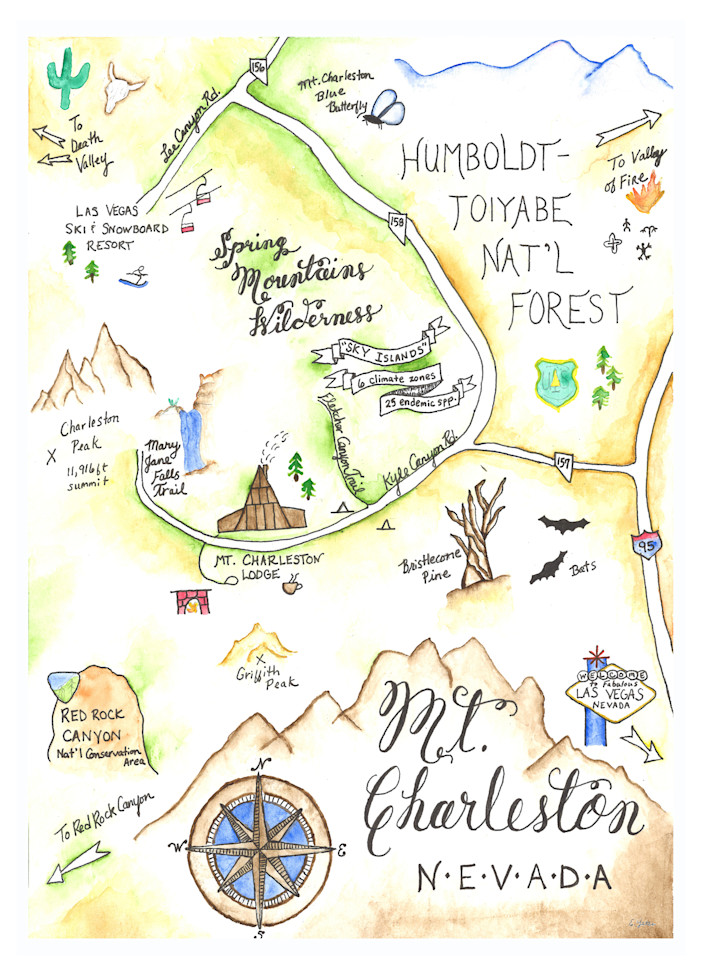 156
Mt. Charleston
Blue
Butterfly
Lee Canyon Rd.
To
Death
Valley
HUMBOLDT-
TOIYABE
NAT'L
FOREST
To Valley
of Fire
LAS VEGAS
SKI & SNOWBOARD
RESORT
158
Spring
Mountains
Wilderness
"SKY ISLANDS"
6 climate zones
25 endemic spp.
Charleston
Peak
X
11,916ft
summit
Mary
Jane
Falls
Trail
Fletcher Canyon Trail
Kyle Canyon Rd.
157
95
MT. CHARLESTON
LODGE
Bristlecone
Pine
Bats
X
Griffith
Peak
WELCOME
To Fabulous
LAS VEGAS
NEVADA
RED ROCK
CANYON
Nat'l Conservation
Area
Mt.
Charleston
N·E·V·A·D·A
To Red Rock Canyon
N
W
E
S